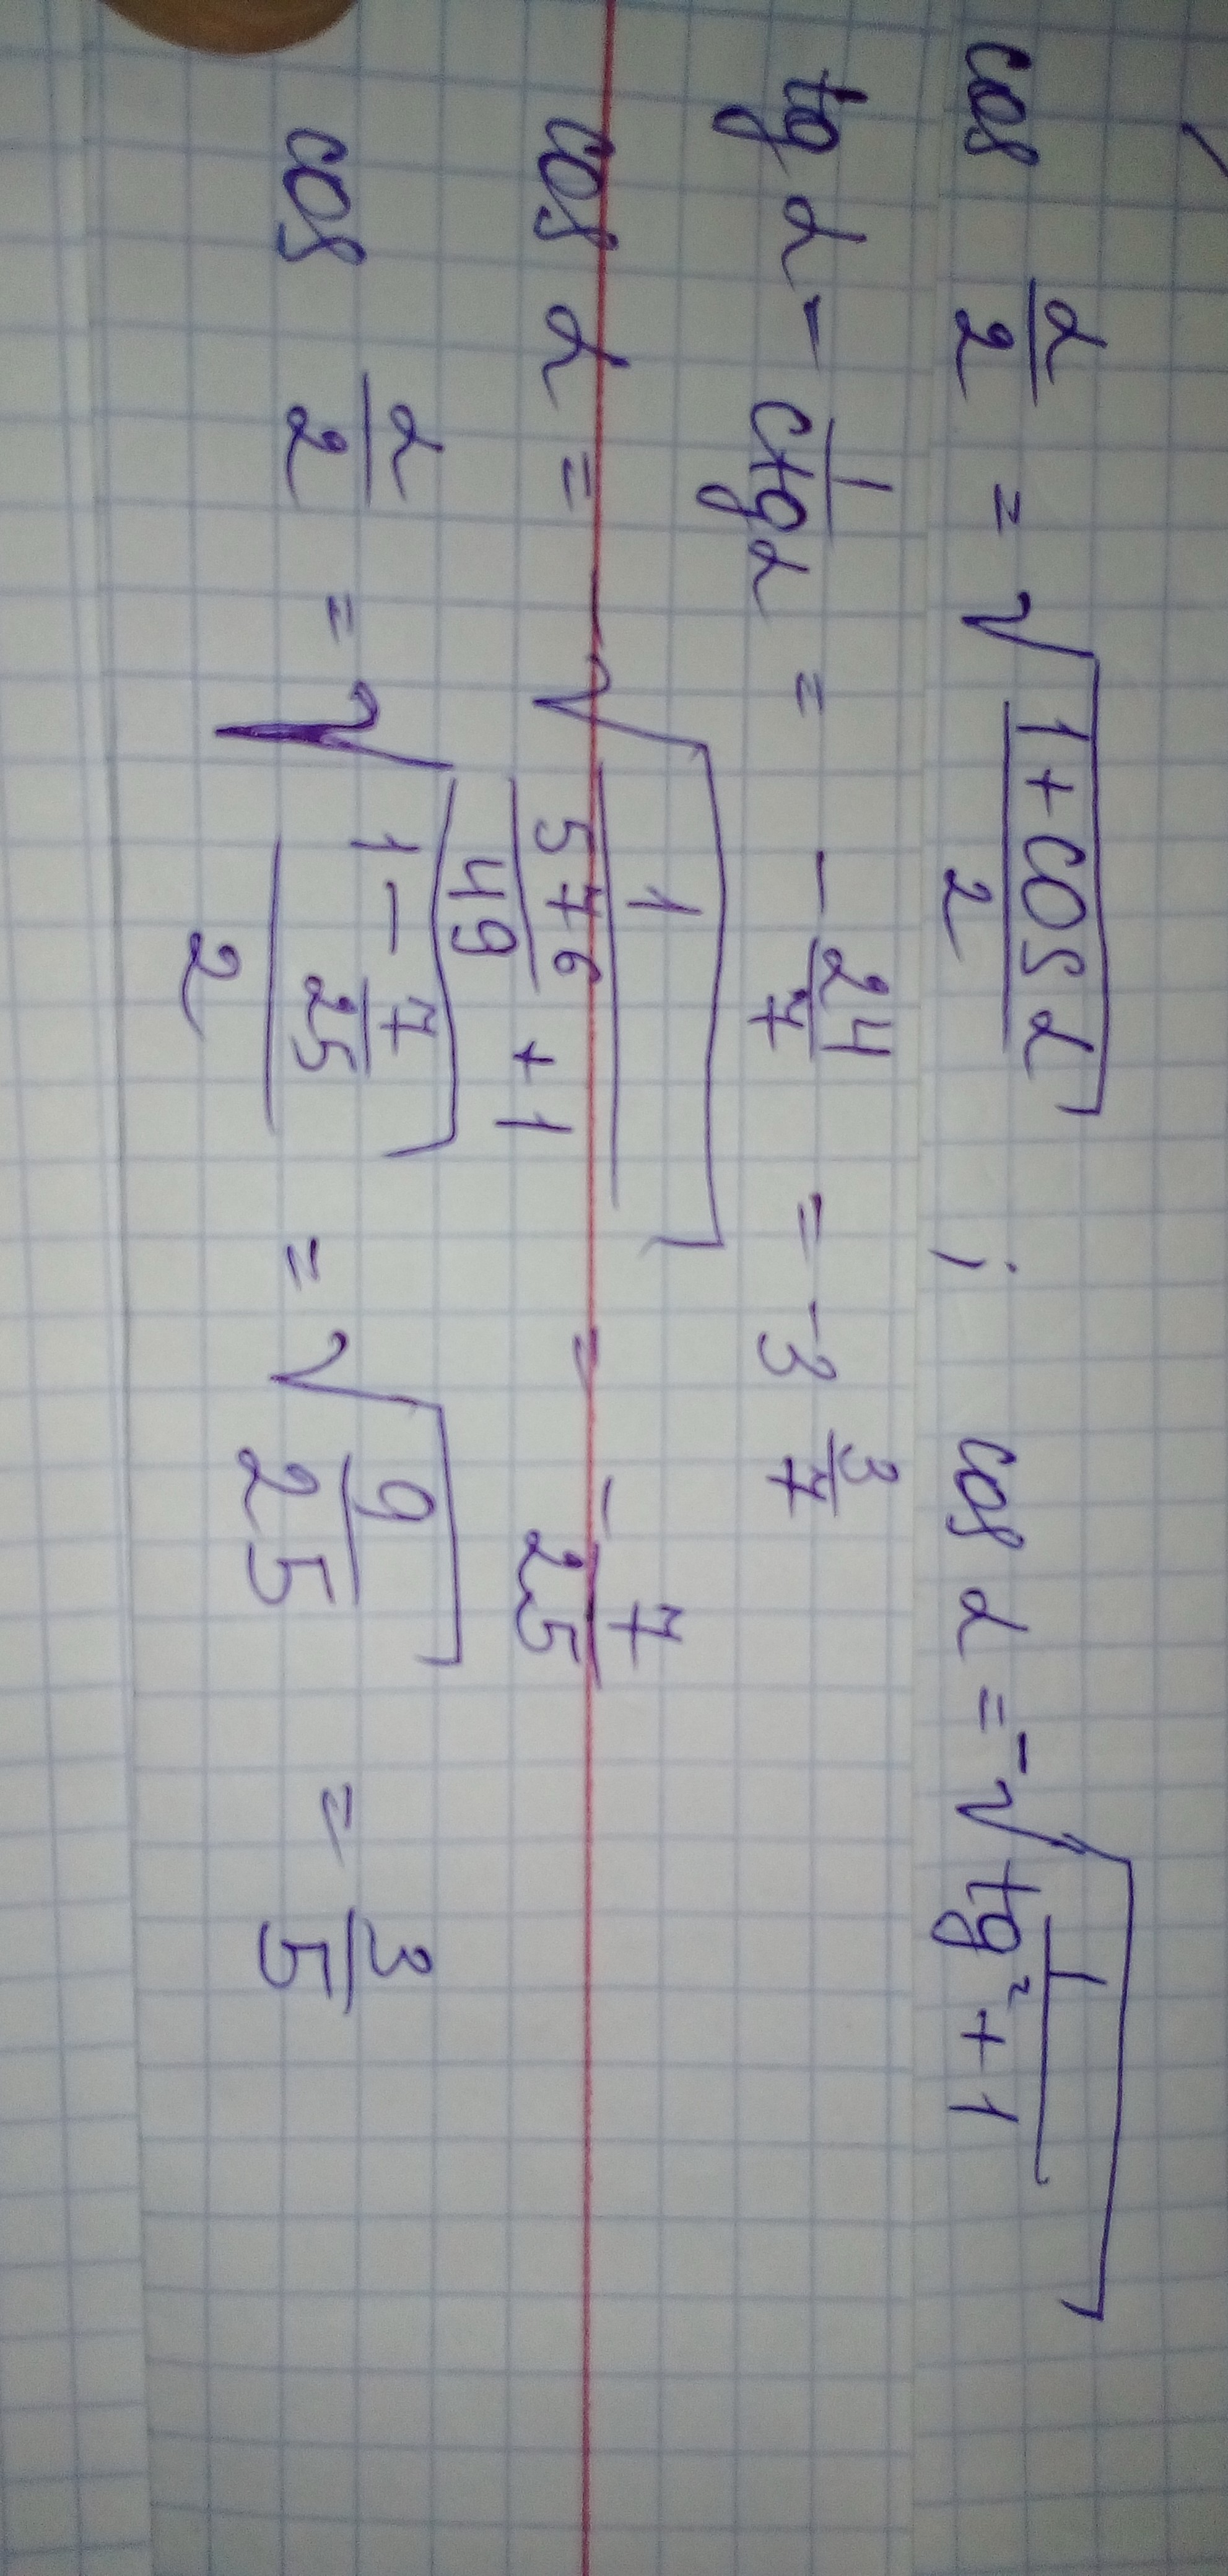 cos α/2 = √((1 + cos α)/2) ; cos α = -√(1/(tg² + 1))
tg α - 1/ctg α = - 24/7 = -3 3/7
cos α = √(1/(576/49 + 1)) = - 7/25
cos α/2 = √((1 - 7/25)/2) = √(9/25) = 3/5